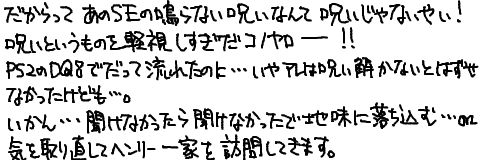 だからって あのSEの鳴らない呪いなんて 呪いじゃないやい!
呪いというものを軽視しすぎだコノヤロー!!
PS2のDQ8でだって流れたのに…いやアレは呪い解かないとはずせ
なかったけども…。
いかん…聞けなかったら聞けなかったで地味に落ち込む…orz
気を取り直してヘンリー一家を訪問してきます。